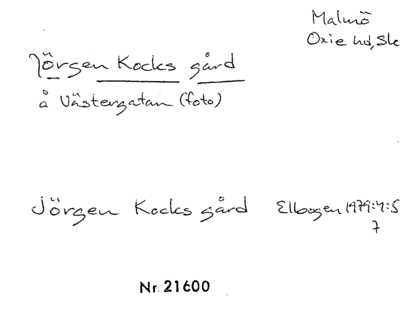 Malmö
Oxie hd, Sk
Jörgen Kocks gård
å Västergatan (foto)
Jörgen Kocks gård Elbogen 1979:4:S
7
Nr 21600